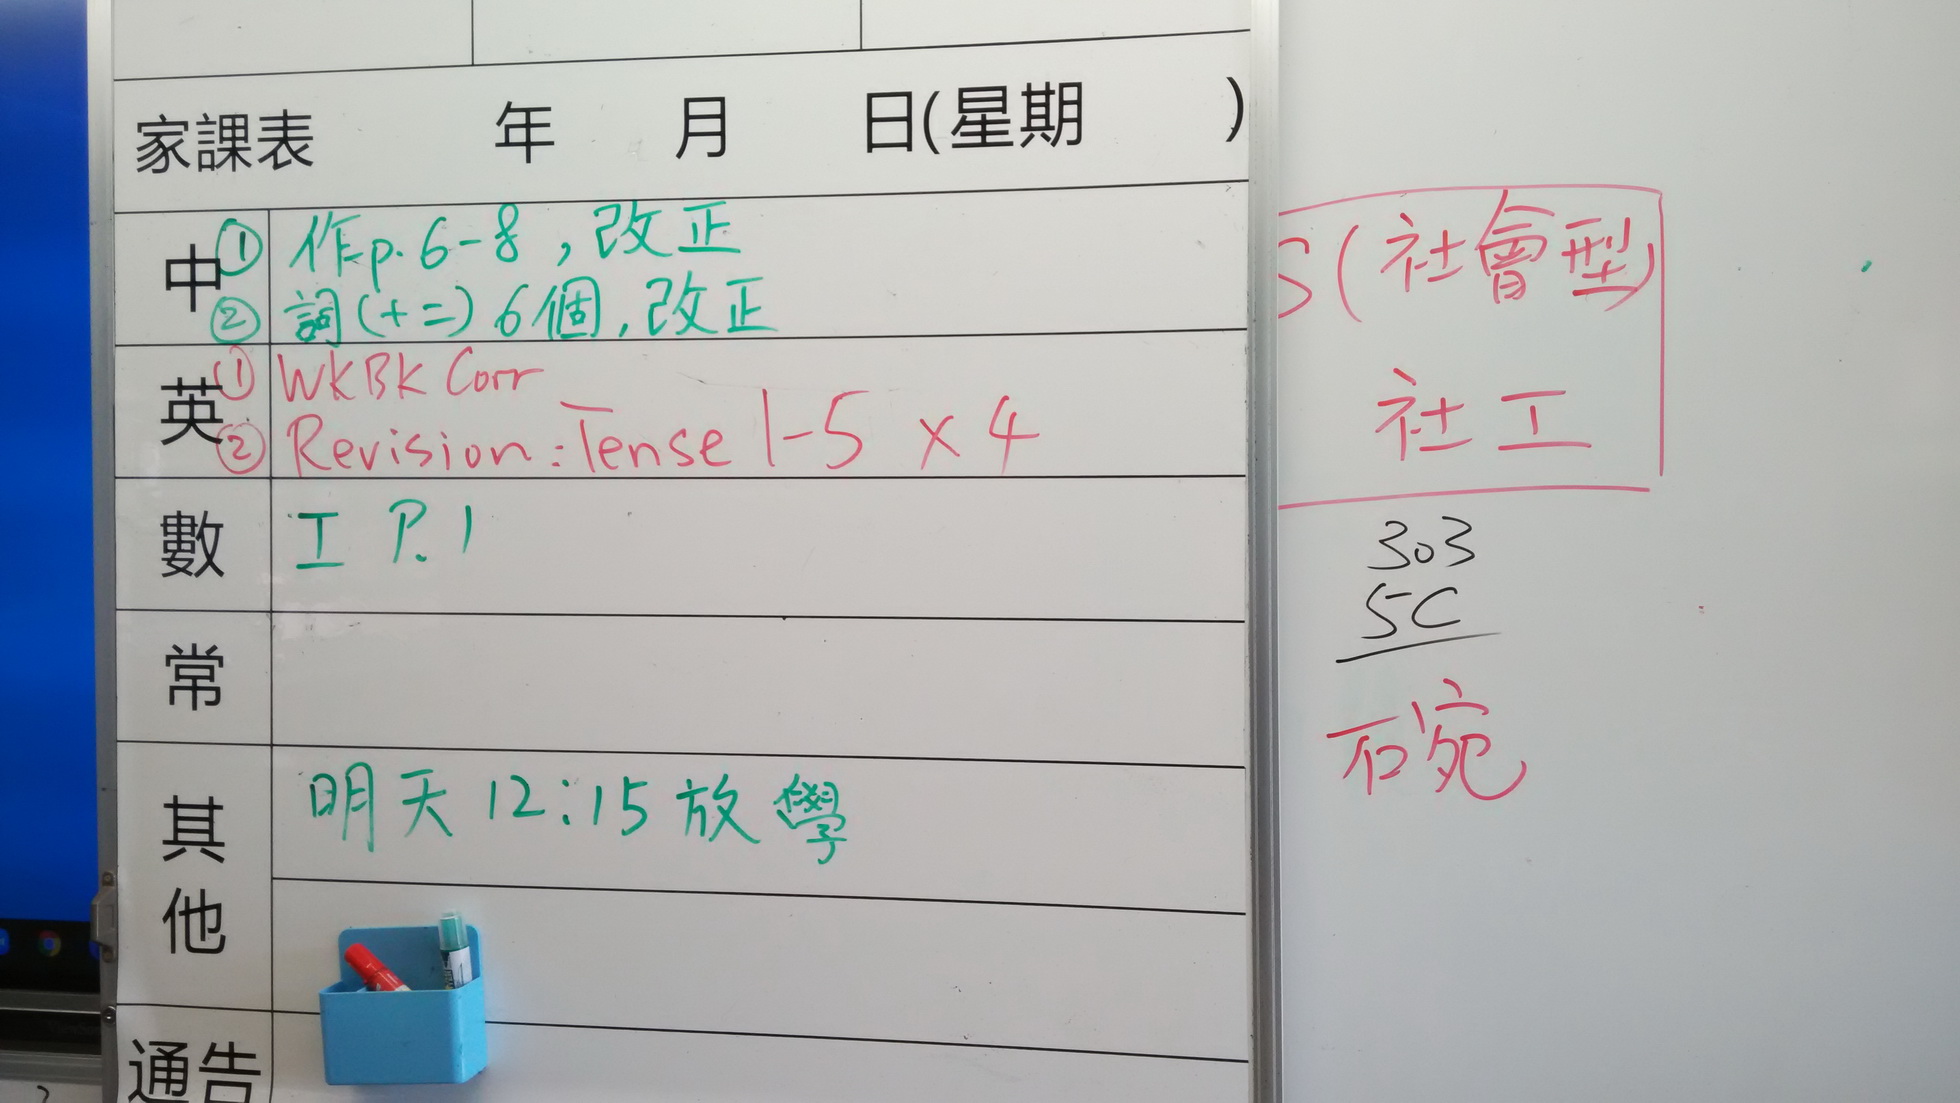 家課表 年 月 日(星期 )
中 ① 作p.6-8,改正
② 詞(十二)6個,改正
英 ① WKBK Corr
② Revision:Tense 1-5 x 4
數 工 P.1
常
其他 明天12:15放學
通告
S(社會型)
社工
303
5C
碗